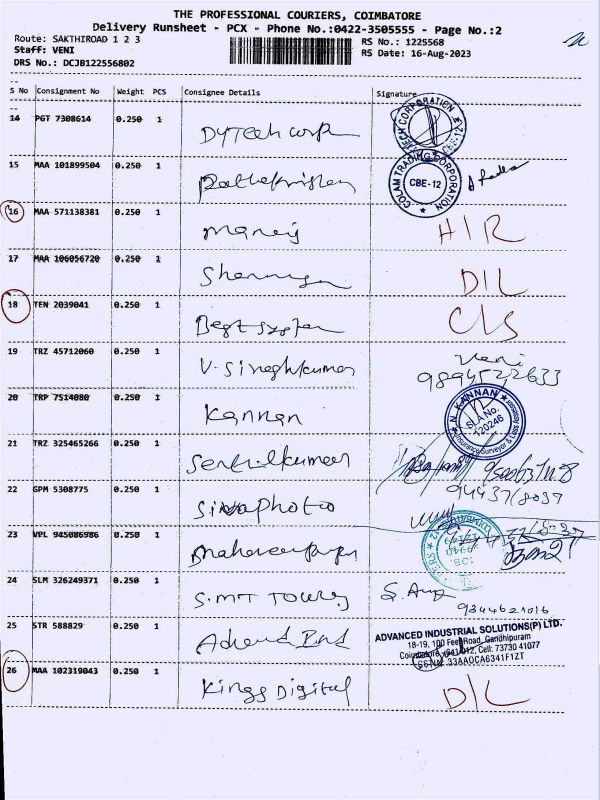 THE PROFESSIONAL COURIERS, COIMBATORE
Delivery Runsheet - PCX - Phone No.:0422-3505555 - Page No.:2
Route: SAKTHIROAD 1 2 3
RS No.: 1225568
Staff: VENI
RS Date: 16-Aug-2023
DRS No.: DCJB122556802
S No Consignment No Weight PCS Consignee Details Signature
14 PGT 7308614 0.250 1 Dytech corp
TECH CORPORATION CBE-12
15 MAA 101899504 0.250 1
COLAM TRADING CORPORATION CBE-12
16 MAA 571138381 0.250 1
17 MAA 106056720 0.250 1
D/L
18 TEN 2039041 0.250 1 Best system
19 TRZ 45712060 0.250 1 V. Singhkumar
Veni
20 TRP 7514080 0.250 1 Kannan
N. KANNAN SLA No. 120246 Insurance Surveyor & Loss Assessor
21 TRZ 325465266 0.250 1 Senthilkumar
22 GPM 5308775 0.250 1 Siva photo
94437/8039
23 VPL 945086986 0.250 1
24 SLM 326249371 0.250 1 S.M.T Towers
9344621016
25 STR 588829 0.250 1
ADVANCED INDUSTRIAL SOLUTIONS(P) LTD.
18-19, 100 Feet Road, Gandhipuram
Coimbatore - 641 012, Cell: 73730 41077
GSTIN: 33AAOCA6341F1ZT
26 MAA 102319043 0.250 1 Kings Digital
D/L